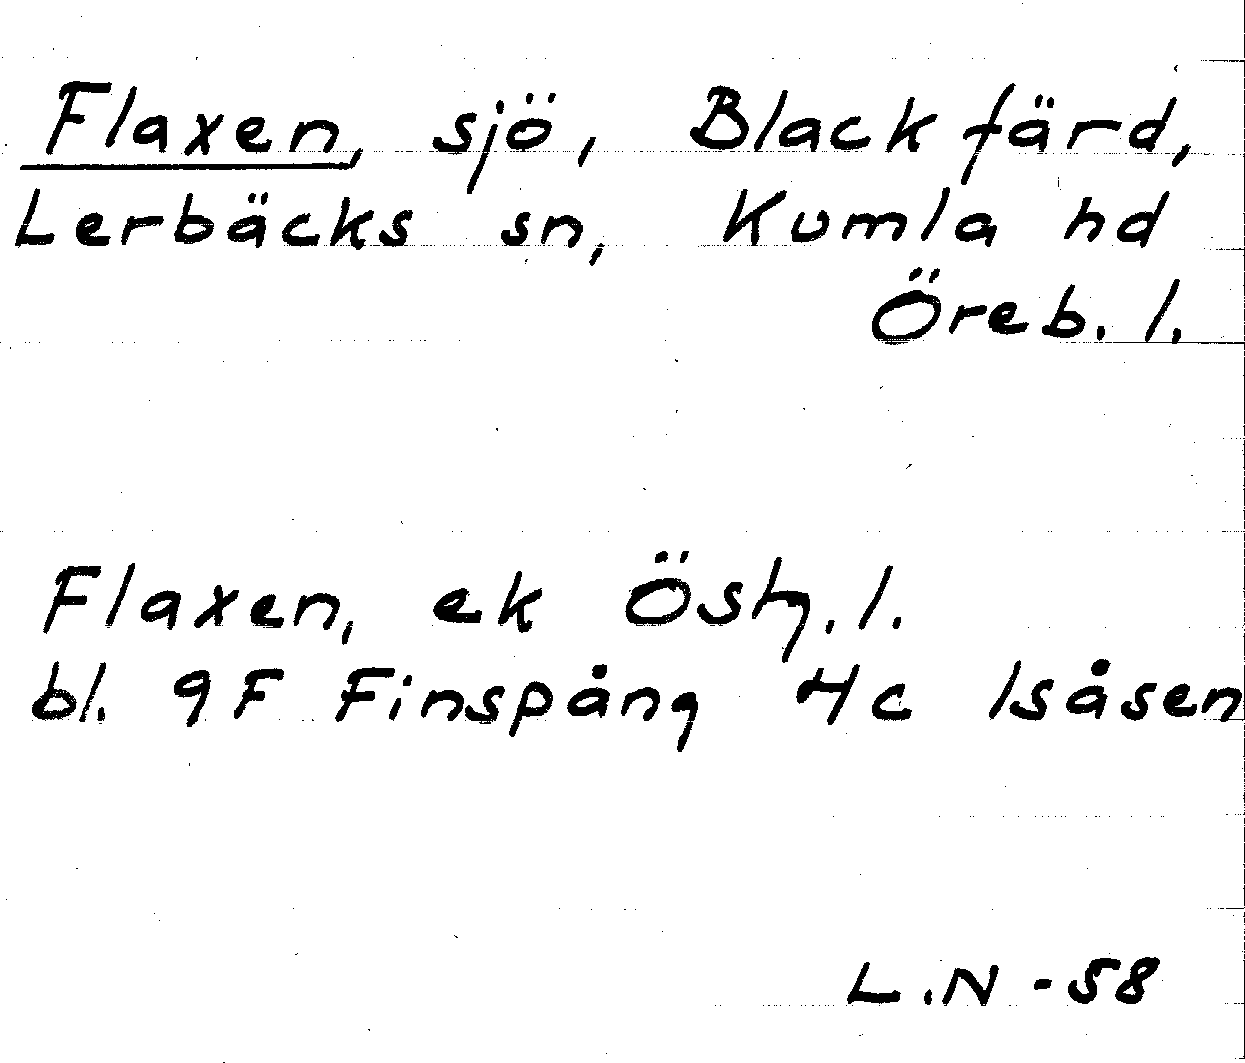 Flaxen, sjö, Blackfärd,
Lerbäcks sn, Kumla hd
Öreb. l.
Flaxen, ek Östg. l.
bl. 9F Finspång 4c Isåsen
L.N - 58